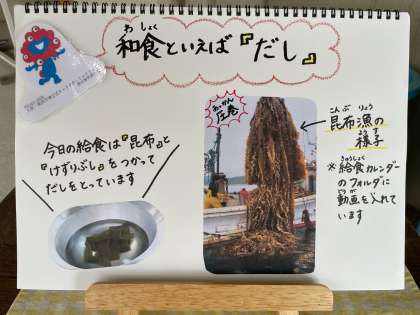 わ しょく
和食といえば『だし』
あっかん
圧巻
こんぶ りょう
昆布漁の
ようす
様子
今日の給食は『昆布』と
『けずりぶし』をつかって
だしをとっています
きゅうしょく
※給食カレンダー
のフォルダに
どうが
動画を入れて
います